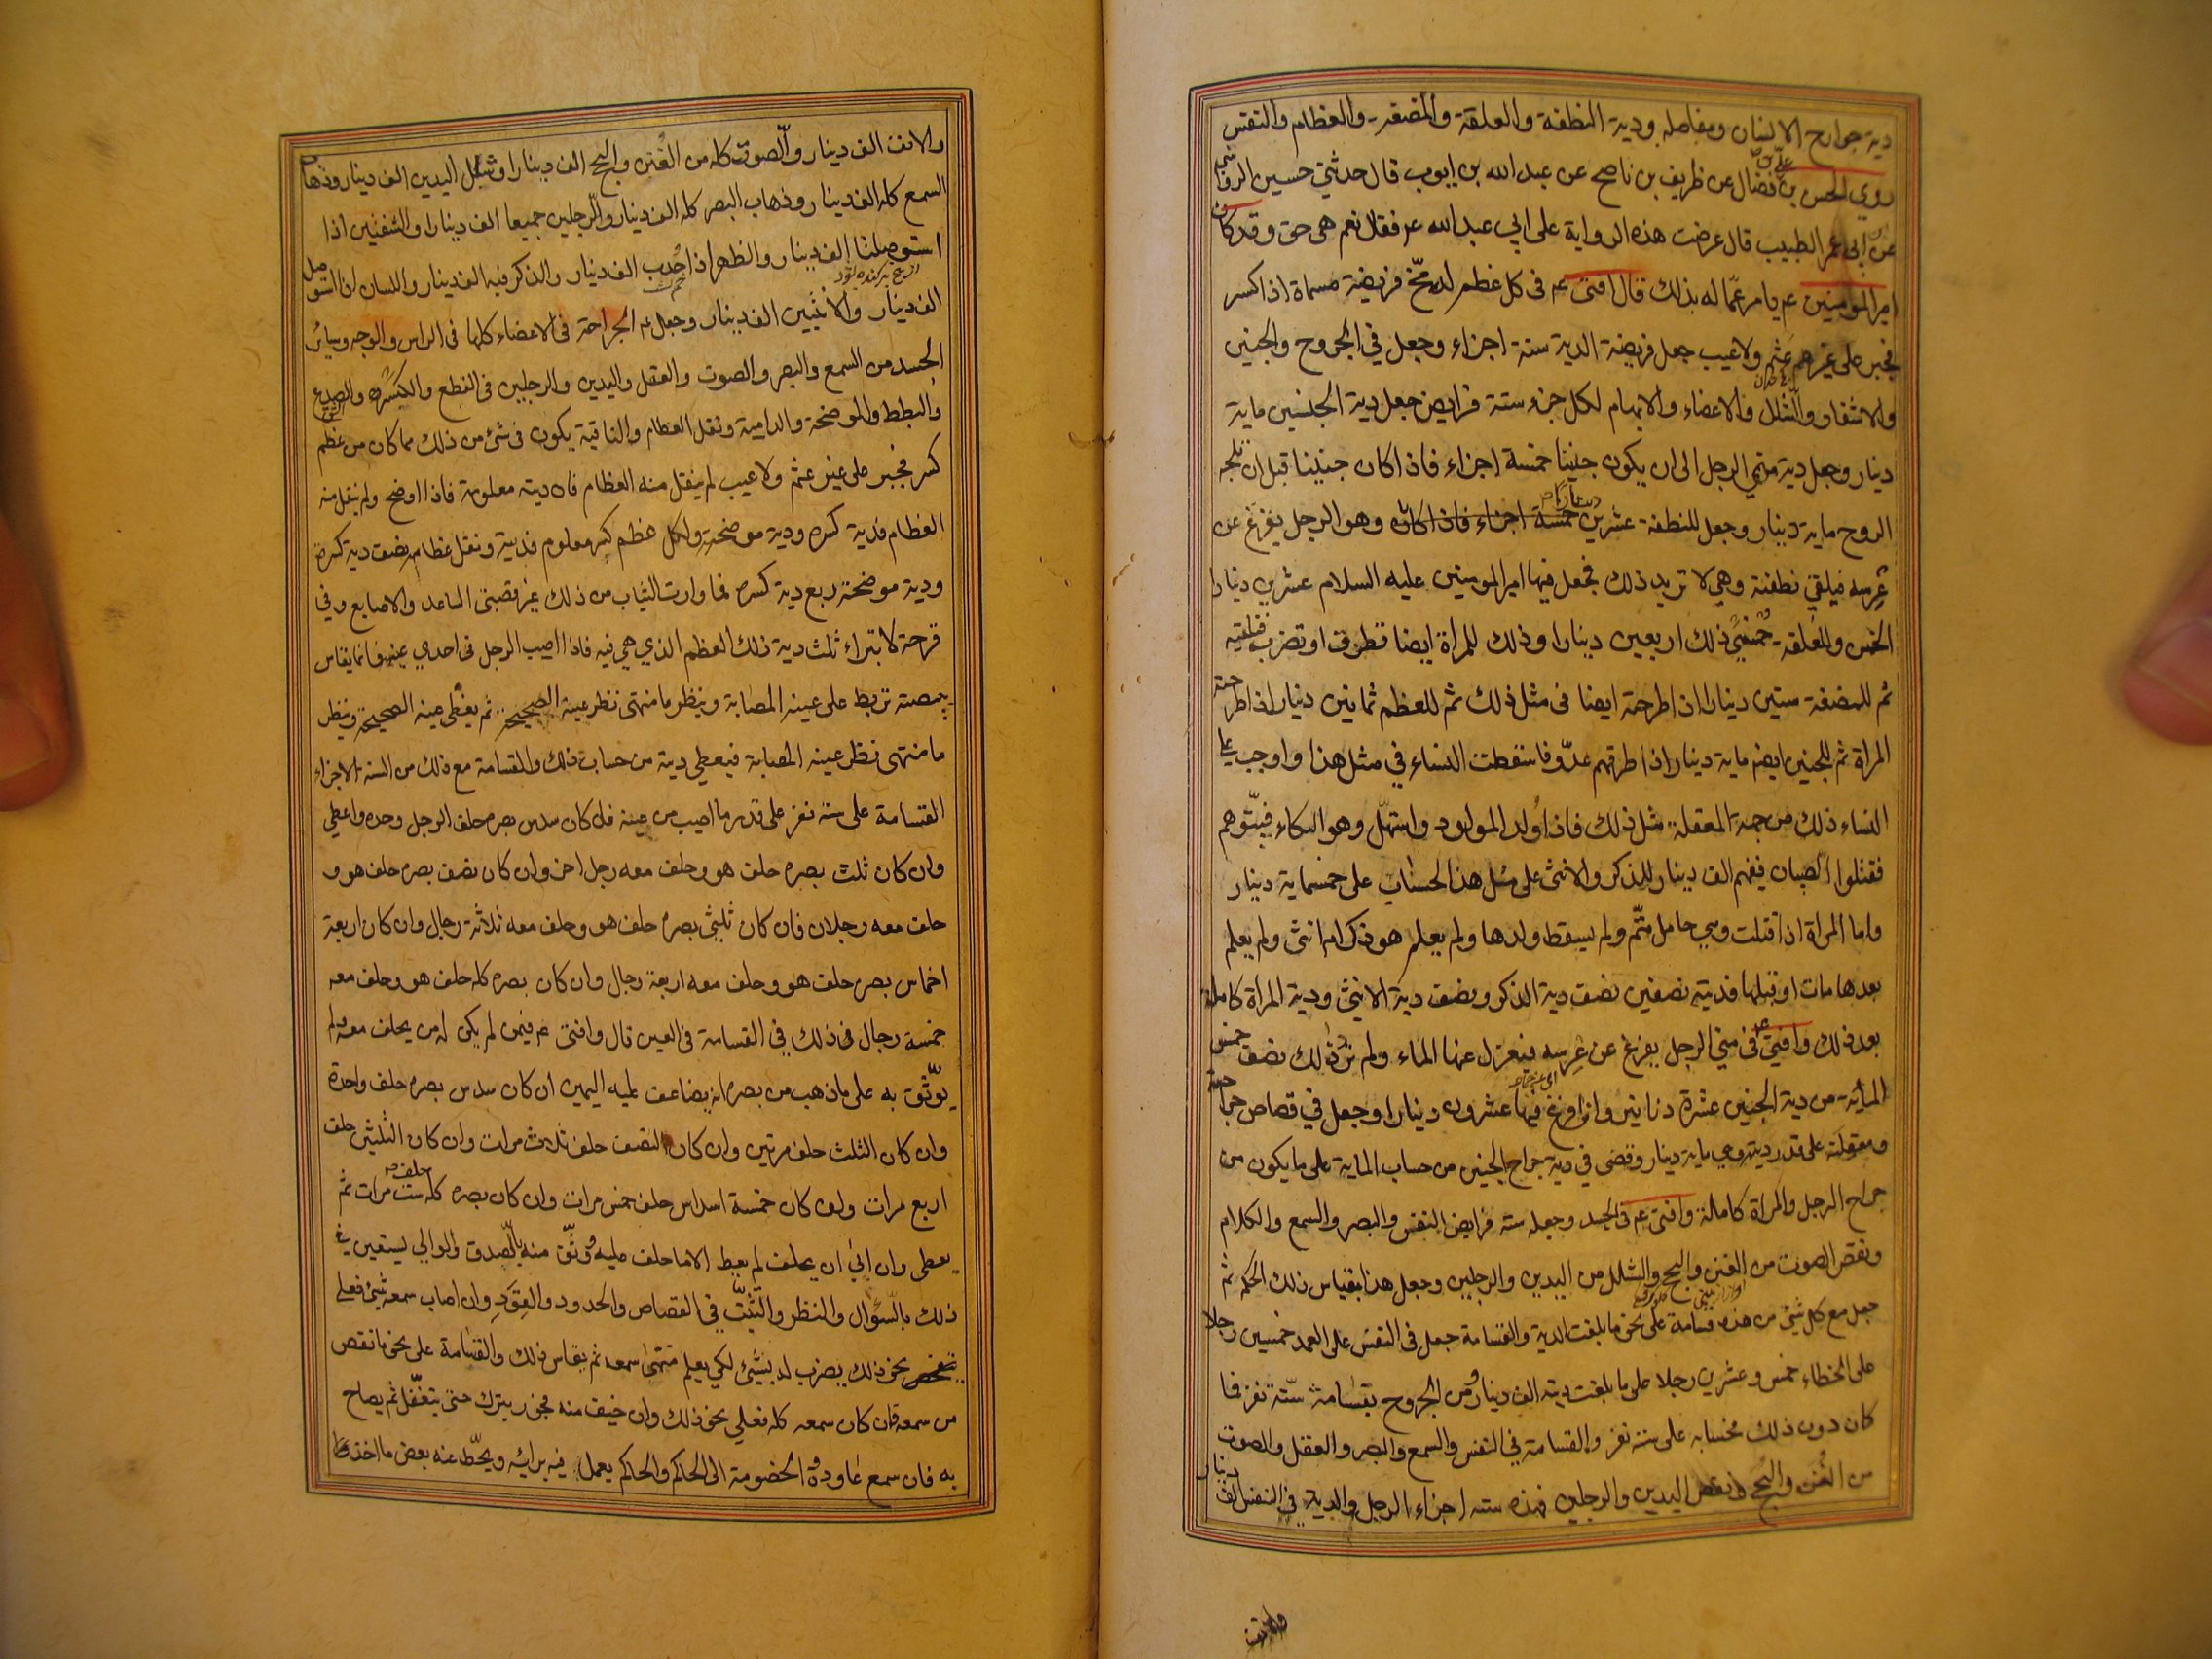 دية جوارح الانسان ومفاصله ودية النطفة والعلقة والمضغة والعظام والنفس
روي الحسن بن علي بن فضال عن ظريف بن ناصح عن عبد الله بن ايوب قال حدثني حسين الرواسي
عن ابي عمر الطبيب قال عرضت هذه الرواية على ابي عبد الله ع فقال نعم هي حق وقد كان
امير المومنين عم يامر عماله بذلك قال افتى عم في كل عظم له مخ فريضة مسماة اذا كسر
فجبر على غير عثم ولا عيب جعل فريضة الدية ستة اجزاء وجعل في الجروح والجنين
والاشفار والشلل والاعضاء والابهام لكل جزء ستة فرايض جعل دية الجنين ماية
دينار وجعل دية مني الرجل الى ان يكون جنينا خمسة اجزاء فاذا كان جنينا قبل ان تلجه
الروح ماية دينار وجعل للنطفة عشرين خمسة اجزاء فاذا كان وهو الرجل يفزع عن
عرسه فيلقي نطفته وهي لا تريد ذلك فجعل فيها امير المومنين عليه السلام عشرين دينارا
الخمس والعلقة خمسي ذلك اربعين دينارا وذلك للمراة ايضا تطرق او تضرب فتلقيه
ثم للمضغة ستين دينارا اذا طرحته ايضا في مثل ذلك ثم للعظم ثمانين دينارا اذا طرحته
المراة ثم للجنين ايضم ماية دينار اذا طرقهم عدو فاسقطت النساء في مثل هذا واوجب على
النساء ذلك من جهة المعقلة مثل ذلك فاذا ولد المولود واستهل وهو البكاء فبيتوهم
فقتلوا الصبيان ففيهم الف دينار للذكر والانثى على مثل هذا الحساب على خمسماية دينار
واما المراة اذا قتلت وهي حامل متم ولم يسقط ولدها ولم يعلم هو ذكر ام انثى ولم يعلم
بعدها مات او قبلها فديته نصفين نصف دية الذكر ونصف دية الانثى ودية المراة كاملة
بعد ذلك وافتى عم في مني الرجل يفزع عن عرسه فيعزل عنها الماء ولم ترد ذلك نصف خمس
الماية من دية الجنين عشرة دنانير وان افرغ فيها عشرون دينارا وجعل في قصاص جراحته
ومعقلته على قدر ديته وهي ماية دينار وقضى في دية جراح الجنين من حساب الماية على ما يكون من
جراح الرجل والمراة كاملة وافتى عم في الجسد وجعله ستة فرايض النفس والبصر والسمع والكلام
ونقص الصوت من الغنن والبحح والشلل من اليدين والرجلين وجعل هذا بقياس ذلك الحكم ثم
جعل مع كل شئ من هذه قسامة على نحو ما بلغت الدية والقسامة جعل في النفس على العمد خمسين رجلا
على الخطاء خمس وعشرين رجلا على ما بلغت ديته الف دينار ومن الجروح بقسامة ستة نفر فما
كان دون ذلك فحسابه على ستة نفر والقسامة في النفس والسمع والبصر والعقل والصوت
من الغنن والبحح ونقص اليدين والرجلين فهذه ستة اجزاء الرجل والدية في النفس الف دينار
والانف
والانف الف دينار والصوت كله من الغنن والبحح الف دينار او شلل اليدين الف دينار وذهاب
السمع كله الف دينار وذهاب البصر كله الف دينار والرجلين جميعا الف دينار والشفتين اذا
استوصلتا الف دينار والظهر اذا احدب الف دينار والذكر فيه الف دينار واللسان اذا استوصل
الف دينار والانثيين الف دينار وجعل عم الجراحة في الاعضاء كلها في الراس والوجه وسائر
الجسد من السمع والبصر والصوت والعقل واليدين والرجلين في القطع والكسر والصدع
والبطط والموضحة والدامية ونقل العظام والناقبة يكون في شئ من ذلك مما كان من عظم
كسر فجبر على غير عثم ولا عيب لم ينقل منه العظام فان ديته معلومة فاذا اوضح ولم ينقل منه
العظام فدية كسره ودية موضحته ولكل عظم كسر معلوم فديته ونقل عظامه نصف دية كسره
ودية موضحته ربع دية كسره فما وارت الثياب من ذلك غير قصبتي الساعد والاصابع وفي
قرحة لا تبراء ثلث دية ذلك العظم الذي هي فيه فاذا اصيب الرجل في احدي عينيه فانما يقاس
ببيضة تربط على عينه المصابة وينظر ما منتهى نظر عينه الصحيحة ثم يغطى عينه الصحيحة وينظر
ما منتهى نظر عينه المصابة فيعطى دية من حساب ذلك والقسامة مع ذلك من الستة الاجزاء
القسامة على ستة نفر على قدر ما اصيب من عينه فان كان سدس بصره حلف الرجل وحده واعطي
وان كان ثلث بصره حلف هو وحلف معه رجل اخر وان كان نصف بصره حلف هو و
حلف معه رجلان فان كان ثلثي بصره حلف هو وحلف معه ثلاثة رجال وان كان اربعة
اخماس بصره حلف هو وحلف معه اربعة رجال وان كان بصره كله حلف هو وحلف معه
خمسة رجال في ذلك في القسامة في العين قال وافتى عم فيمن لم يكن له من يحلف معه ولم
يوثق به على ما ذهب من بصره انه يضاعف عليه اليمين ان كان سدس بصره حلف واحدة
وان كان الثلث حلف مرتين وان كان النصف حلف ثلاث مرات وان كان الثلثين حلف
اربع مرات وان كان خمسة اسداس حلف خمس مرات وان كان بصره كله حلف ست مرات ثم
يعطى وان ابى ان يحلف لم يعط الا ما حلف عليه ووثق منه بالصدق والوالي يستعين في
ذلك بالسؤال والنظر والتثبت في القصاص والحدود والقود وان اصاب سمعه شئ فعلى
نحو ذلك يضرب له بشئ لكي يعلم منتهى سمعه ثم يقاس ذلك والقسامة على نحو ما نقص
من سمعه فان كان سمعه كله فعلى نحو ذلك وان خيف منه فجور يترك حتى يتغفل ثم يصاح
به فان سمع عاودوه الخصومة الى الحاكم والحاكم يعمل فيه برائه ويحط عنه بعض ما اخذ